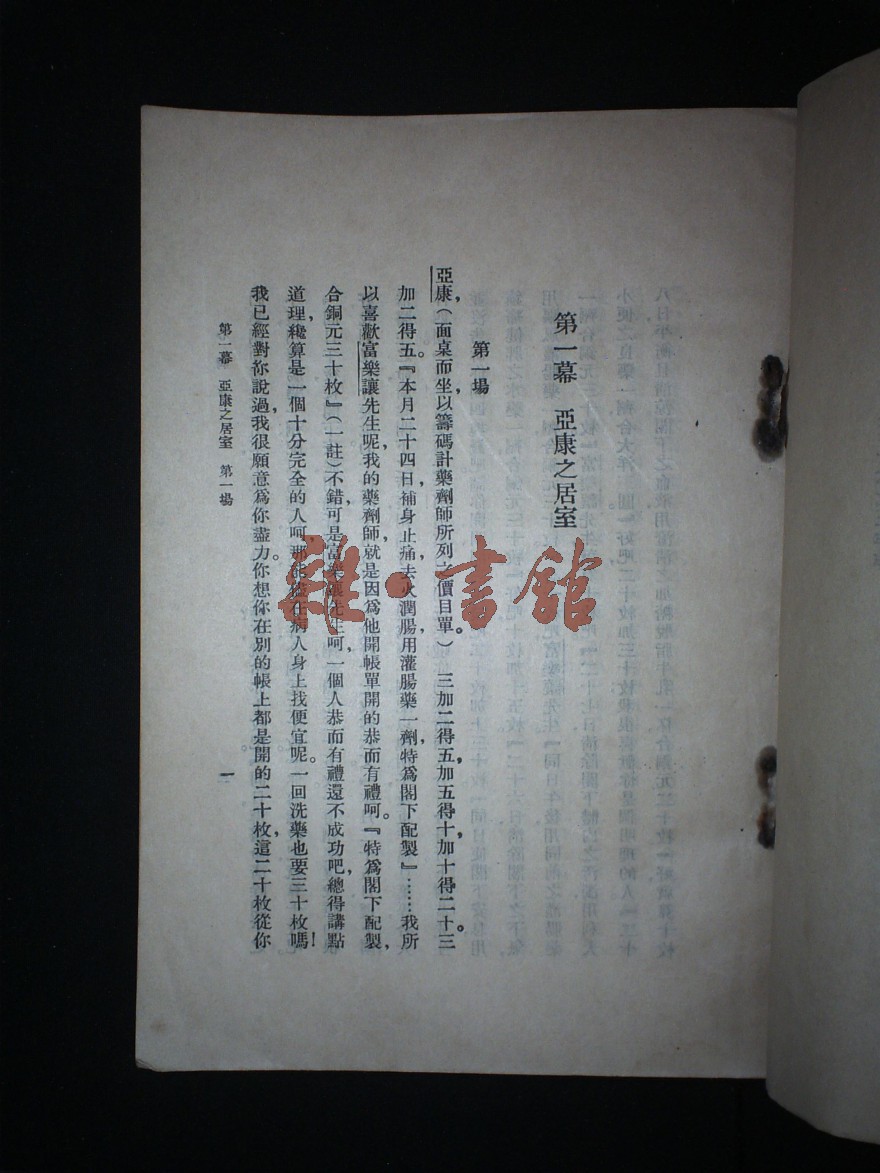 第一幕　亞康之居室
第一場
亞康，（面桌而坐以籌碼計藥劑師所列之價目單。）　三加二得五，加五得十，加十得二十。三
加二得五。『本月二十四日，補身止痛去火潤腸，用灌腸藥一劑，特爲閣下配製』……我所
以喜歡富樂讓先生呢，我的藥劑師，就是因爲他開帳單開的恭而有禮呵。『特爲閣下配製，
合銅元三十枚』（一註）不錯，可是富樂讓先生呵，一個人恭而有禮還不成功吧，總得講點
道理，纔算是一個十分完全的人呵，那能儘在病人身上找便宜呢。一回洗藥也要三十枚嗎！
我已經對祢說過，我很願意爲你盡力。你想你在別的帳上都是開的二十枚，這二十枚從你
第一幕　亞康之居室　第一場
一
雜·書館